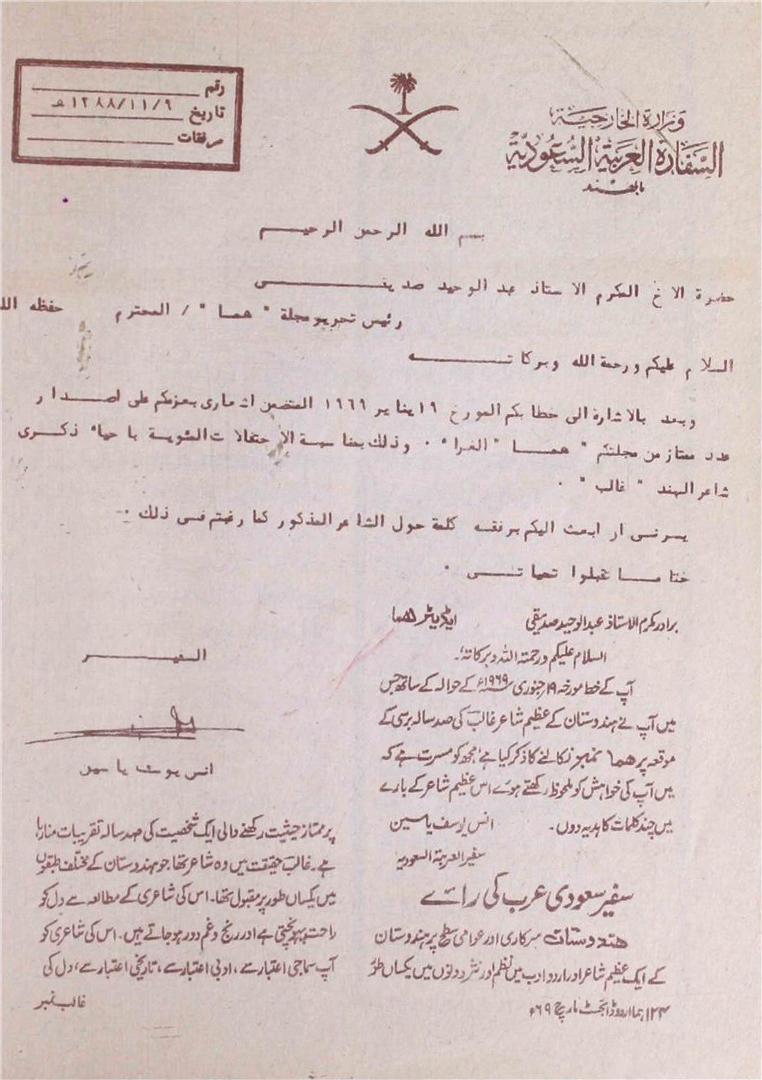 وزارة الخارجية
السفارة العربية السعودية
بالهند
رقم
تاريخ ١٣٨٨/١١/٩ هـ
مرفقات
بسم الله الرحمن الرحيم
حضرة الاخ المكرم الاستاذ عبد الوحيد صديقي
رئيس تحرير مجلة " هما " / المحترم حفظه الله
السلام عليكم ورحمة الله وبركاته
وبعد بالاشارة الى خطابكم المورخ ١٩ يناير ١٩٦٩ المتضمن اشعارى بعزمكم على اصدار
عدد ممتاز من مجلتكم " هما " الغرا" . وذلك بمناسبة الاحتفالات المئوية باحيا" ذكرى
شاعر الهند " غالب " .
يسرنى ان ابعث اليكم برفقه كلمة حول الشاعر المذكور كما رغبتم فى ذلك .
ختاما تقبلوا تحياتى .
السفير
انس يوسف ياسين
برادر مکرم الاستاذ عبدالوحید صدیقی ایڈیٹر ھما
السلام علیکم ورحمتہ اللہ وبرکاتہ؛
آپ کے خط مورخہ ۱۹ جنوری ۱۹۶۹ء کے حوالہ کے ساتھ جس
میں آپ نے ہندوستان کے عظیم شاعر غالب کی صد سالہ برسی کے
موقعہ پر ھما نمبر نکالنے کا ذکر کیا ہے، مجھ کو مسرت ہے کہ
میں آپ کی خواہش کو ملحوظ رکھتے ہوئے اس عظیم شاعر کے بارے
میں چند کلمات کا ہدیہ دوں۔ انس یوسف یاسین
سفیر العربیۃ السعودیہ
سفیر سعودی عرب کی رائے
ھندوستان سرکاری اور عوامی سطح پر ہندوستان
کے ایک عظیم شاعر اور اردو ادب میں نظم اور نثر دونوں میں یکساں طور
پر ممتاز حیثیت رکھنے والی ایک شخصیت کی صد سالہ تقریبات منا رہا
ہے۔ غالب حقیقت میں وہ شاعر تھا، جو ہندوستان کے مختلف طبقوں
میں یکساں طور پر مقبول تھا۔ اس کی شاعری کے مطالعہ سے دل کو
راحت پہونچتی ہے اور رنج و غم دور ہو جاتے ہیں۔ اس کی شاعری کو
آپ سماجی اعتبار سے، ادبی اعتبار سے، تاریخی اعتبار سے، دل کی
۱۲۴ ہما اردو ڈائجسٹ مارچ ۶۹ء
غالب نمبر